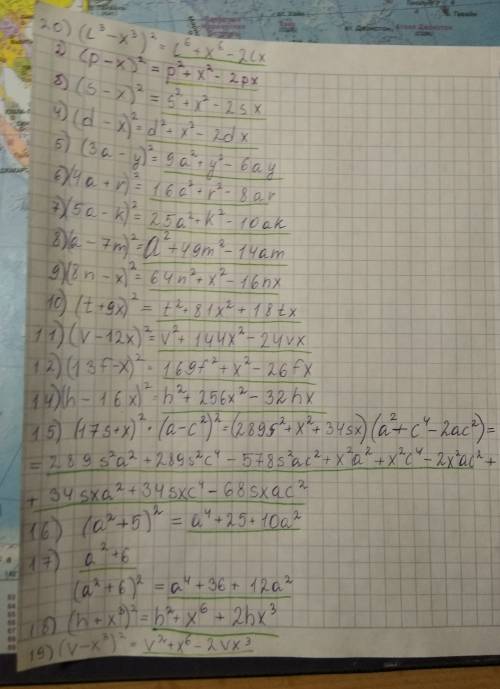 20) (c³-x³)² = c⁶+x⁶-2cx
2) (p-x)² = p²+x²-2px
3) (s-x)² = s²+x²-2sx
4) (d-x)² = d²+x²-2dx
5) (3a-y)² = 9a²+y²-6ay
6) (4a+r)² = 16a²+r²-8ar
7) (5a-k)² = 25a²+k²-10ak
8) (a-7m)² = a²+49m²-14am
9) (8n-x)² = 64n²+x²-16nx
10) (t+9x)² = t²+81x²+18tx
11) (v-12x)² = v²+144x²-24vx
12) (13f-x)² = 169f²+x²-26fx
14) (h-16x)² = h²+256x²-32hx
15) (17s+x)² · (a-c²)² = (289s²+x²+34sx)(a²+c⁴-2ac²) =
= 289s²a²+289s²c⁴-578s²ac²+x²a²+x²c⁴-2x²ac²+
+ 34sxa²+34sxc⁴-68sxac²
16) (a²+5)² = a⁴+25+10a²
17) a²+6
(a²+6)² = a⁴+36+12a²
18) (h+x³)² = h²+x⁶+2hx³
19) (v-x³)² = v²+x⁶-2vx³